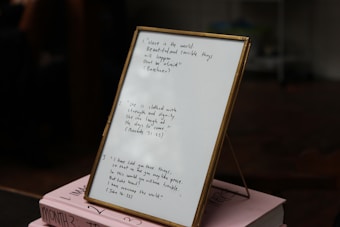 1. "Here is the world.
Beautiful and terrible things
will happen.
Don't be afraid"
(Buechner)
2. "She is clothed with
strength and dignity
and she laughs at
the days to come"
(Proverbs 31:25)
3. "I have told you these things,
so that in me you may have peace.
In this world you will have trouble.
But take heart!
I have overcome the world."
(John 16:33)